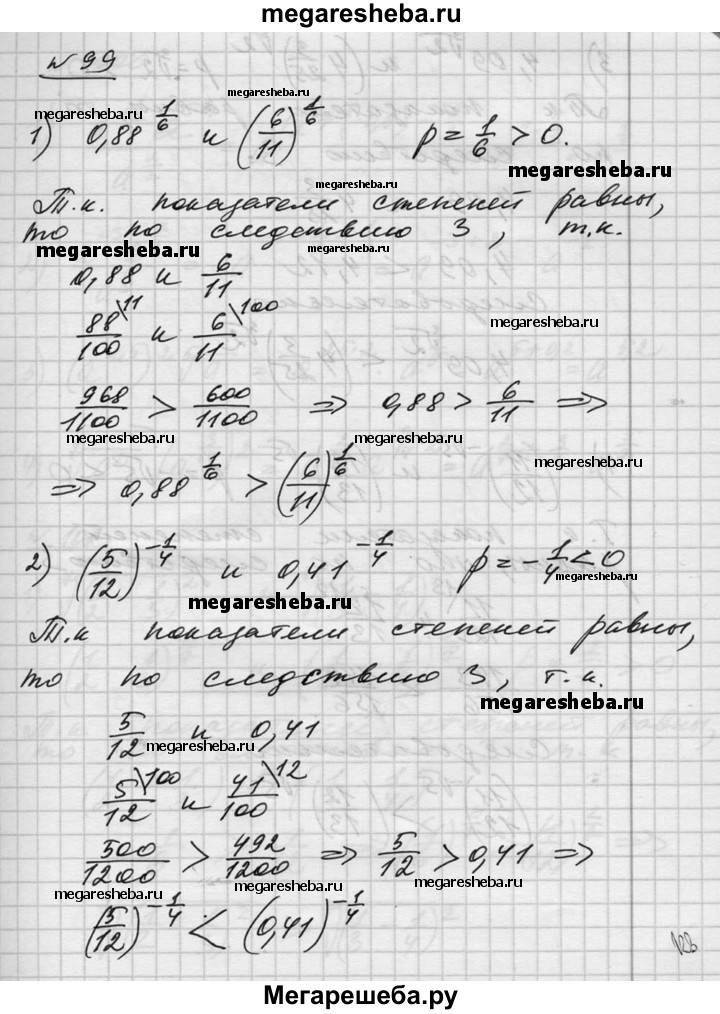 megaresheba.ru
№ 99
megaresheba.ru
megaresheba.ru
1) 0,88^(1/6) и (6/11)^(1/6) p = 1/6 > 0.
megaresheba.ru
megaresheba.ru
Т.к. показатели степеней равны,
то по следствию 3, т.к.
megaresheba.ru
megaresheba.ru
0,88 и 6/11
88/100 \11 и 6/11 \100
megaresheba.ru
megaresheba.ru
968/1100 > 600/1100 => 0,88 > 6/11 =>
megaresheba.ru
megaresheba.ru
megaresheba.ru
=> 0,88^(1/6) > (6/11)^(1/6)
2) (5/12)^(-1/4) и 0,41^(-1/4) p = -1/4 < 0
megaresheba.ru
megaresheba.ru
Т.к показатели степеней равны,
то по следствию 3, т.к.
megaresheba.ru
5/12 и 0,41
megaresheba.ru
5/12 \100 и 41/100 \12
500/1200 > 492/1200 => 5/12 > 0,41 =>
megaresheba.ru
megaresheba.ru
megaresheba.ru
(5/12)^(-1/4) < (0,41)^(-1/4)
Мегарешеба.ру